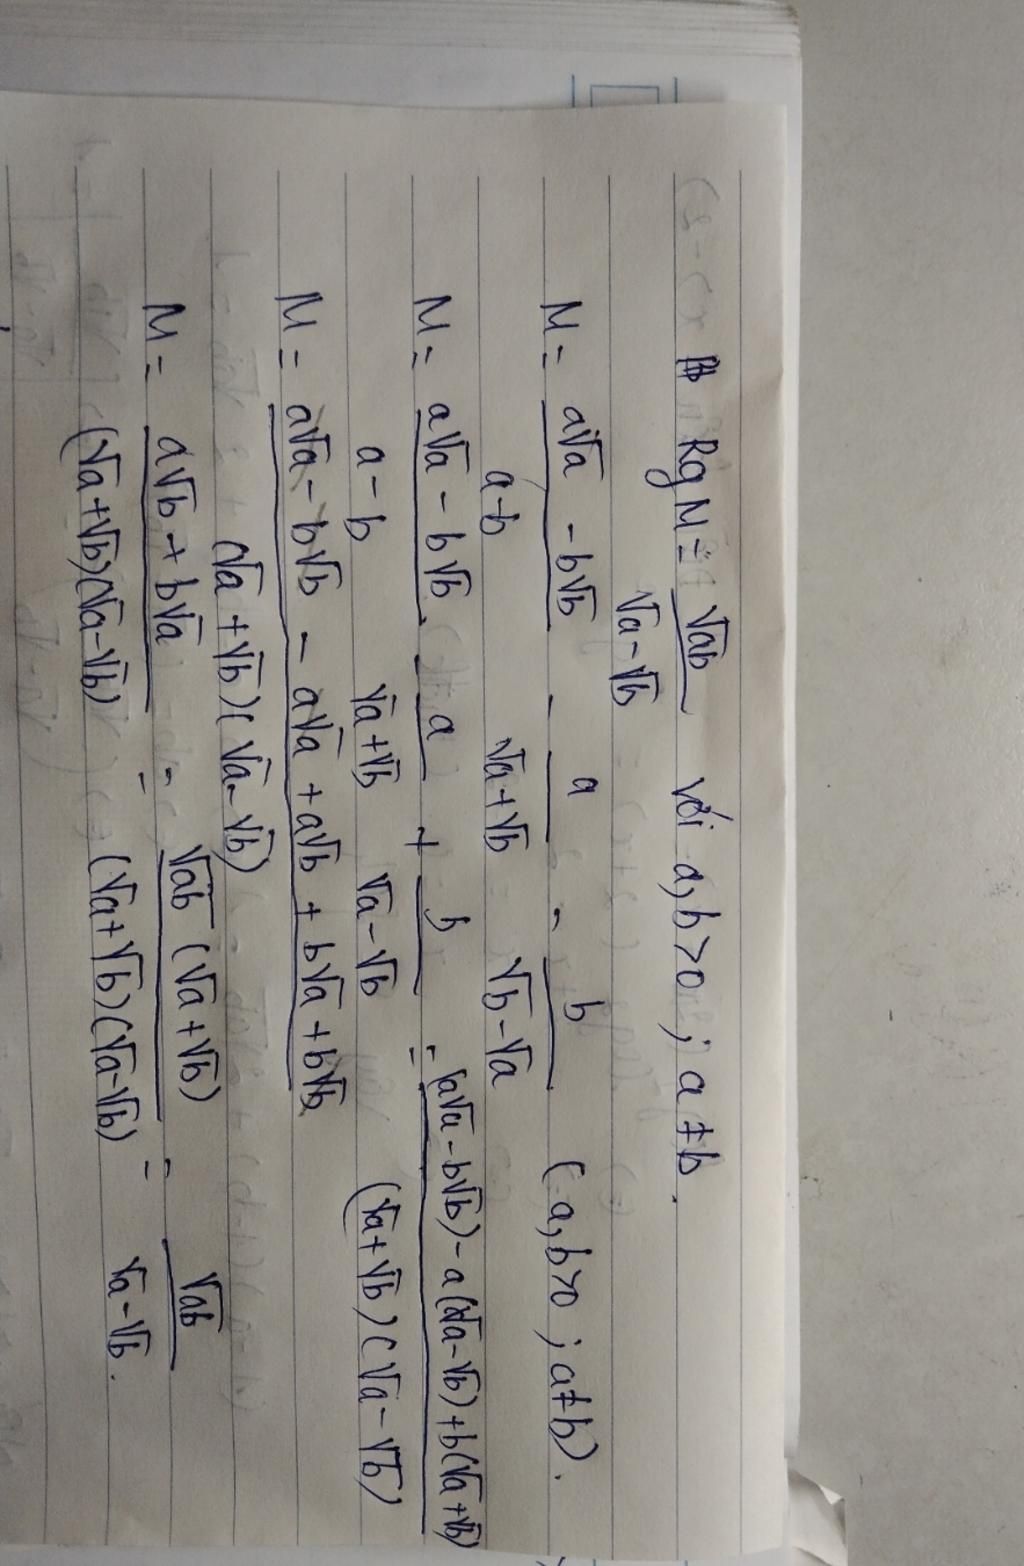 Rg M = √ab / (√a - √b) với a,b>0 ; a ≠ b.
M = (a√a - b√b) / (a-b) - a / (√a+√b) - b / (√b-√a) (a,b>0 ; a≠b).
M = (a√a - b√b) / (a-b) - a / (√a+√b) + b / (√a-√b) = ((a√a - b√b) - a(√a-√b) + b(√a+√b)) / ((√a+√b)(√a-√b))
M = (a√a - b√b - a√a + a√b + b√a + b√b) / ((√a+√b)(√a-√b))
M = (a√b + b√a) / ((√a+√b)(√a-√b)) = √ab (√a+√b) / ((√a+√b)(√a-√b)) = √ab / (√a-√b).